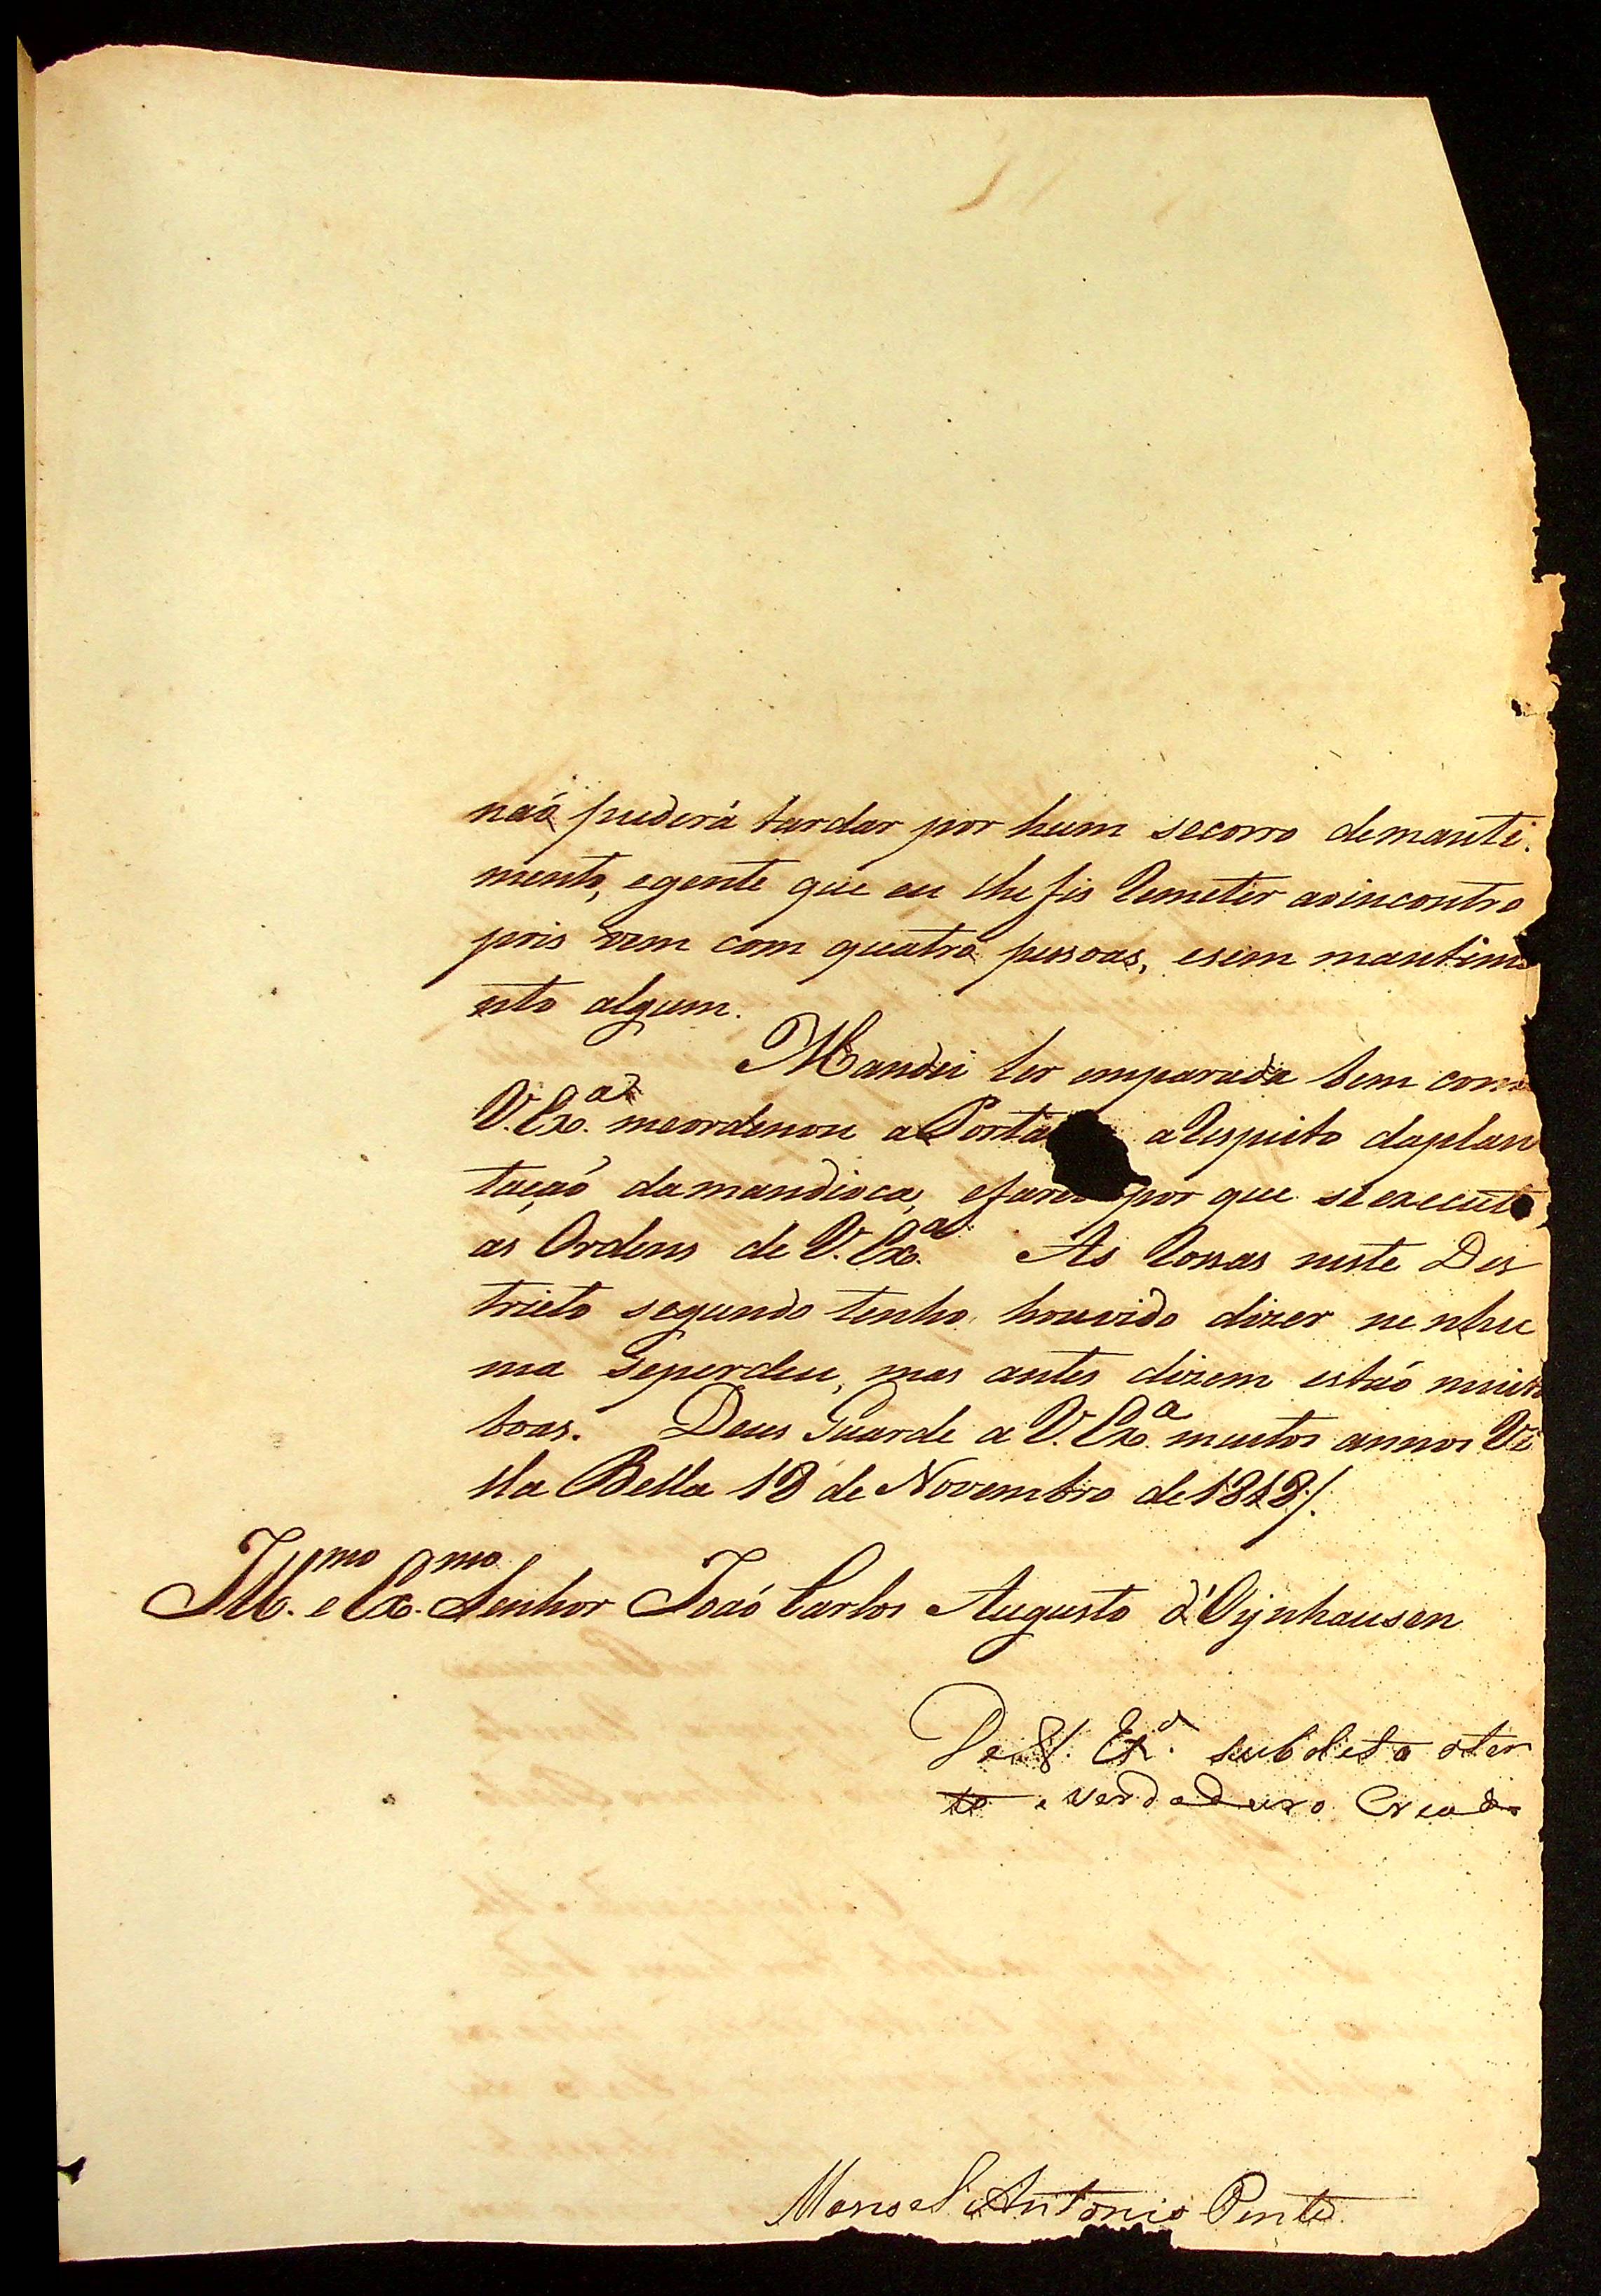 naó puderá tardar por hum secorro demanti.
mento, egente que eu lhe fis Remeter aoincontro
pois vem com quatro pessoas, esem mantim
ento algum.
Mandei ler emparada bem com
V. Exª. meordenou a Porta aRespeito daplan
taçaó damandioca, efare por que seexecut
as Ordens de V. Exª. As Rossas neste Des
tricto segundo tenho houvido dizer nenhu
ma seperdeu, mas antes dizem estaó muito
boas. Deus Guarde a V. Exª muitos annos Vi
lla Bella 18 de Novembro de 1818/.
Illmo. e Exmo. Senhor Joaó Carlos Augusto d'Oÿnhausen
De V. Exª. subdito aten
to e verdadeiro Creado
Manoel Antonio Pinto